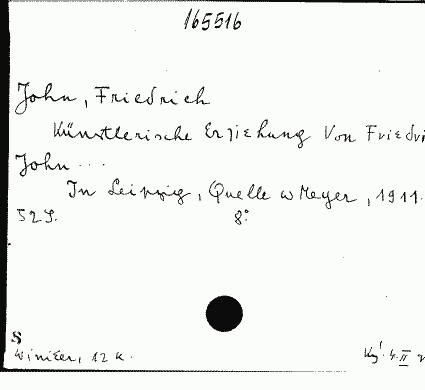 165516
John, Friedrich
Künstlerische Erziehung Von Friedri
John ...
In Leipzig, Quelle u Meyer, 1911.
52 S. 8°
S
Winkler, 12 k.